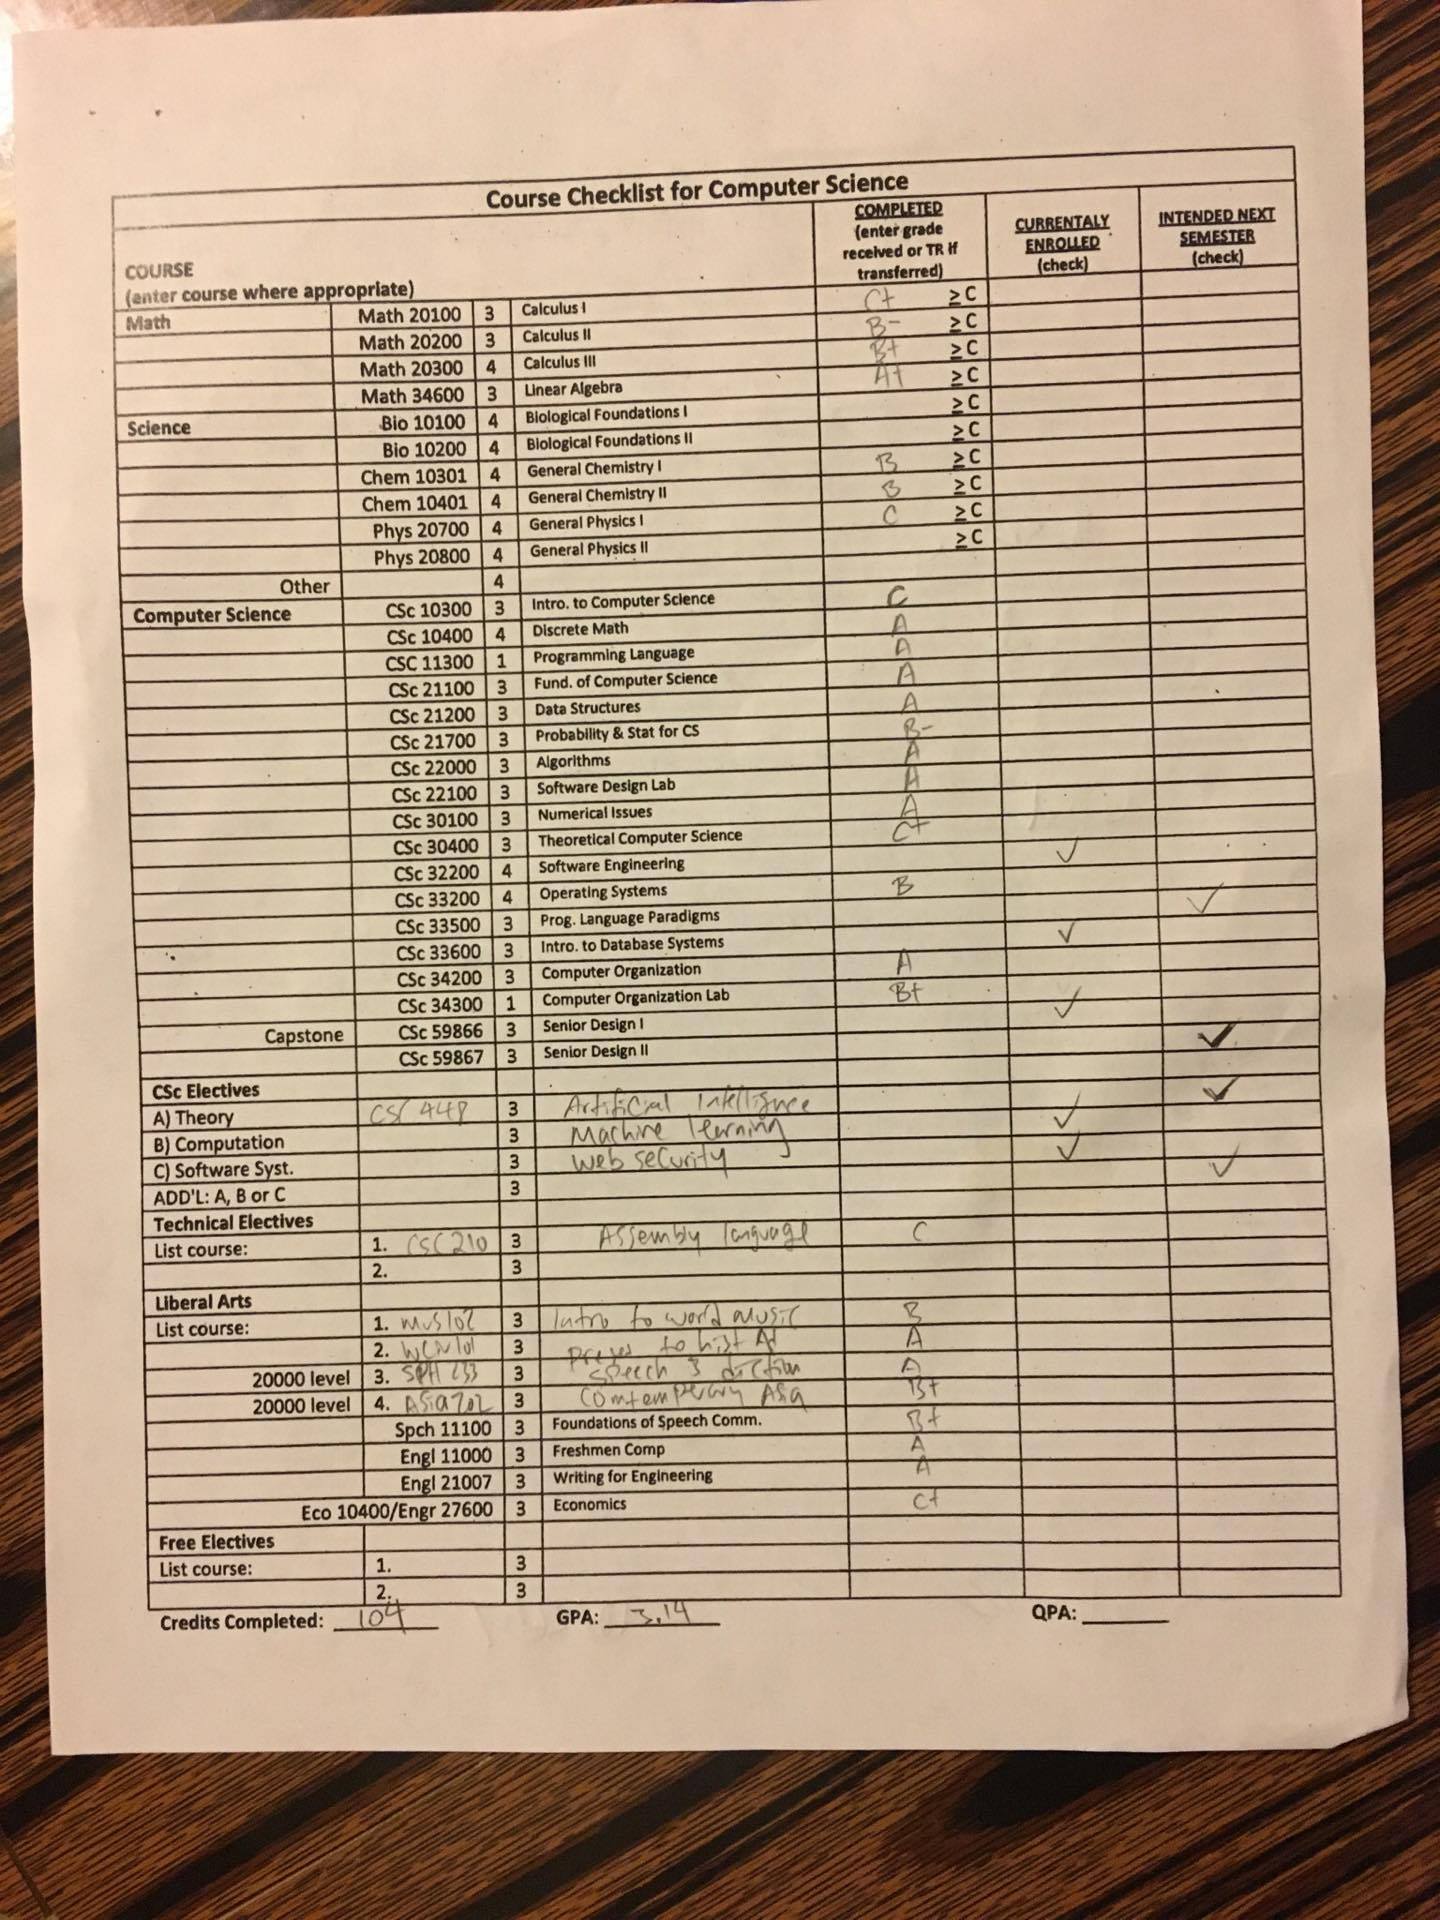 Course Checklist for Computer Science
COURSE
(enter course where appropriate)
COMPLETED
(enter grade
received or TR if
transferred)
CURRENTALY
ENROLLED
(check)
INTENDED NEXT
SEMESTER
(check)
Math Math 20100 3 Calculus I C+ ≥ C
Math 20200 3 Calculus II B- ≥ C
Math 20300 4 Calculus III B+ ≥ C
Math 34600 3 Linear Algebra A+ ≥ C
Science Bio 10100 4 Biological Foundations I ≥ C
Bio 10200 4 Biological Foundations II ≥ C
Chem 10301 4 General Chemistry I B ≥ C
Chem 10401 4 General Chemistry II B ≥ C
Phys 20700 4 General Physics I C ≥ C
Phys 20800 4 General Physics II ≥ C
Other 4
Computer Science CSc 10300 3 Intro. to Computer Science C
CSc 10400 4 Discrete Math A
CSC 11300 1 Programming Language A
CSc 21100 3 Fund. of Computer Science A
CSc 21200 3 Data Structures A
CSc 21700 3 Probability & Stat for CS B-
CSc 22000 3 Algorithms A
CSc 22100 3 Software Design Lab A
CSc 30100 3 Numerical Issues A
CSc 30400 3 Theoretical Computer Science C+
CSc 32200 4 Software Engineering ✓
CSc 33200 4 Operating Systems B
CSc 33500 3 Prog. Language Paradigms ✓
CSc 33600 3 Intro. to Database Systems ✓
CSc 34200 3 Computer Organization A
CSc 34300 1 Computer Organization Lab B+
Capstone CSc 59866 3 Senior Design I ✓
CSc 59867 3 Senior Design II ✓
CSc Electives
A) Theory CSC 448 3 Artificial Intelligence ✓
B) Computation 3 Machine learning ✓
C) Software Syst. 3 web security ✓
ADD'L: A, B or C 3 ✓
Technical Electives
List course: 1. CSC210 3 Assembly language C
2. 3
Liberal Arts
List course: 1. MUS102 3 Intro to world music B
2. WCIV101 3 to hist A
20000 level 3. SPH 233 3 speech & diction A
20000 level 4. ASia202 3 Comtemperary Asia B+
Spch 11100 3 Foundations of Speech Comm. B+
Engl 11000 3 Freshmen Comp A
Engl 21007 3 Writing for Engineering A
Eco 10400/Engr 27600 3 Economics C+
Free Electives
List course: 1. 3
2. 3
Credits Completed: 104 GPA: 3.14 QPA: